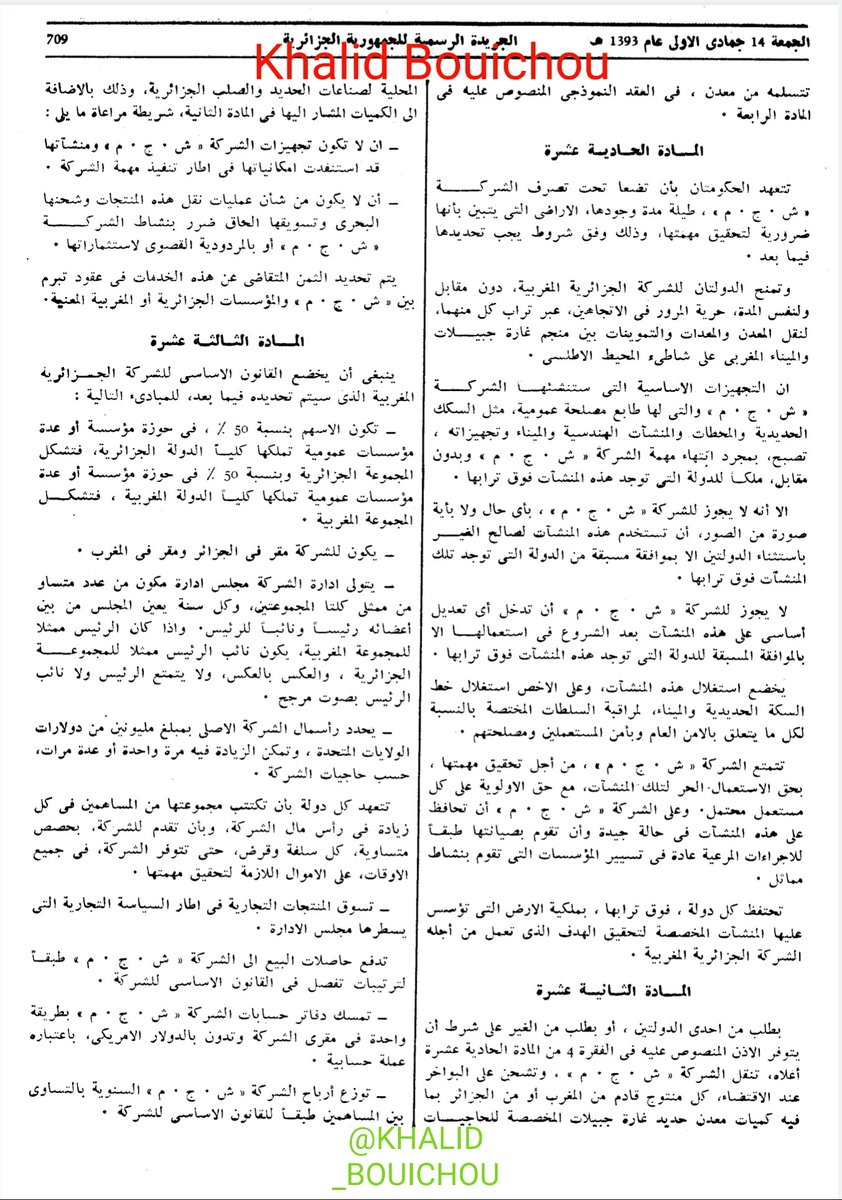 الجمعة 14 جمادى الاولى عام 1393 هـ
الجريدة الرسمية للجمهورية الجزائرية
709
Khalid Bouichou
تتسلمه من معدن ، فى العقد النموذجى المنصوص عليه فى
المادة الرابعة ٠
المــادة الحاديـة عشرة
تتعهد الحكومتان بأن تضعا تحت تصرف الشركــــة
« ش ٠ ج ٠ م » ، طيلة مدة وجودها، الاراضى التى يتبين بأنها
ضرورية لتحقيق مهمتها، وذلك وفق شروط يجب تحديدها
فيما بعد ٠
وتمنح الدولتان للشركة الجزائرية المغربية، دون مقابل
ولنفس المدة، حرية المرور فى الاتجاهين، عبر تراب كل منهما،
لنقل المعدن والمعدات والتموينات بين منجم غارة جبيـــلات
والميناء المغربى على شاطىء المحيط الاطلسى ٠
ان التجهيزات الاساسية التى ستنشئهـا الشركــــة
« ش ٠ ج ٠ م » والتى لها طابع مصلحة عمومية، مثل السكك
الحديدية والمحطات والمنشآت الهندسية والميناء وتجهيزاته ،
تصبح، بمجرد انتهاء مهمة الشركة « ش ٠ ج ٠ م » وبدون
مقابل، ملكاً للدولة التى توجد هذه المنشآت فوق ترابها ٠
الا أنه لا يجوز للشركة « ش ٠ ج ٠ م » ، بأى حال ولا بأية
صورة من الصور، أن تستخدم هذه المنشآت لصالح الغيـر
باستثناء الدولتين الا بموافقة مسبقة من الدولة التى توجد تلك
المنشآت فوق ترابها ٠
لا يجوز للشركة « ش ٠ ج ٠ م » أن تدخل أى تعديل
أساسى على هذه المنشآت بعد الشروع فى استعمالهــا الا
بالموافقة المسبقة للدولة التى توجد هذه المنشآت فوق ترابها ٠
يخضع استغلال هذه المنشآت، وعلى الاخص استغلال خط
السكة الحديدية والميناء، لمراقبة السلطات المختصة بالنسبة
لكل ما يتعلق بالامن العام وبأمن المستعملين ومصلحتهم ٠
تتمتع الشركة « ش ٠ ج ٠ م » ، من أجل تحقيق مهمتها ،
بحق الاستعمال الحر لتلك المنشآت، مع حق الاولوية على كل
مستعمل محتمل٠ وعلى الشركة « ش ٠ ج ٠ م » أن تحافظ
على هذه المنشآت فى حالة جيدة وأن تقوم بصيانتها طبقـاً
للاجراءات المرعية عادة فى تسيير المؤسسات التى تقوم بنشاط
مماثل ٠
تحتفظ كل دولة ، فوق ترابها ، بملكية الارض التى تؤسس
عليها المنشآت المخصصة لتحقيق الهدف الذى تعمل من أجله
الشركة الجزائرية المغربية ٠
المــادة الثانيـة عشرة
بطلب من احدى الدولتين ، أو بطلب من الغير على شرط أن
يتوفر الاذن المنصوص عليه فى الفقرة 4 من المادة الحادية عشرة
أعلاه، تنقل الشركة « ش ٠ ج ٠ م » ، وتشحن على البواخر
عند الاقتضاء، كل منتوج قادم من المغرب أو من الجزائر بما
فيه كميات معدن حديد غارة جبيلات المخصصة للحاجيــات
المحلية لصناعات الحديد والصلب الجزائرية، وذلك بالاضافة
الى الكميات المشار اليها فى المادة الثانية، شريطة مراعاة ما يلى :
ــ ان لا تكون تجهيزات الشركة « ش ٠ ج ٠ م » ومنشآتها
قد استنفدت امكانياتها فى اطار تنفيذ مهمة الشركة ٠
ــ أن لا يكون من شأن عمليات نقل هذه المنتجات وشحنها
البحرى وتسويقها الحاق ضرر بنشاط الشركــــة
« ش ٠ ج ٠ م » أو بالمردودية القصوى لاستثماراتها ٠
يتم تحديد الثمن المتقاضى عن هذه الخدمات فى عقود تبرم
بين « ش ٠ ج ٠ م » والمؤسسات الجزائرية أو المغربية المعنية٠
المــادة الثـالثـة عشرة
ينبغى أن يخضع القانون الاساسى للشركة الجــزائرية
المغربية الذى سيتم تحديده فيما بعد، للمبادىء التالية :
ــ تكون الاسهم بنسبة 50 ٪ ، فى حوزة مؤسسة أو عدة
مؤسسات عمومية تملكها كليـاً الدولة الجزائرية، فتشكل
المجموعة الجزائرية وبنسبة 50 ٪ فى حوزة مؤسسة أو عدة
مؤسسات عمومية تملكها كليـاً الدولة المغربية ، فتشكــل
المجموعة المغربية ٠
ــ يكون للشركة مقر فى الجزائر ومقر فى المغرب ٠
ــ يتولى ادارة الشركة مجلس ادارة مكون من عدد متساو
من ممثلى كلتا المجموعتين، وكل سنة يعين المجلس من بين
أعضائه رئيسـاً ونائبـاً للرئيس٠ واذا كان الرئيس ممثلا
للمجموعة المغربية، يكون نائب الرئيس ممثلا للمجموعــــة
الجزائرية ، والعكس بالعكس، ولا يتمتع الرئيس ولا نائب
الرئيس بصوت مرجح ٠
ــ يحدد رأسمال الشركة الاصلى بمبلغ مليونين من دولارات
الولايات المتحدة ، وتمكن الزيادة فيه مرة واحدة أو عدة مرات،
حسب حاجيات الشركة ٠
تتعهد كل دولة بأن تكتتب مجموعتها من المساهمين فى كل
زيادة فى رأس مال الشركة، وبأن تقدم للشركة، بحصص
متساوية، كل سلفة وقرض، حتى تتوفر الشركة، فى جميع
الاوقات، على الاموال اللازمة لتحقيق مهمتها ٠
ــ تسوق المنتجات التجارية فى اطار السياسة التجارية التى
يسطرها مجلس الادارة ٠
تدفع حاصلات البيع الى الشركة « ش ٠ ج ٠ م » طبقـاً
لترتيبات تفصل فى القانون الاساسى للشركة ٠
ــ تمسك دفاتر حسابات الشركة « ش ٠ ج ٠ م » بطريقة
واحدة فى مقرى الشركة وتدون بالدولار الامريكى، باعتباره
عملة حسابية ٠
ــ توزع أرباح الشركة « ش ٠ ج ٠ م » السنوية بالتساوى
بين المساهمين طبقـاً للقانون الاساسى للشركة ٠
@KHALID
_BOUICHOU